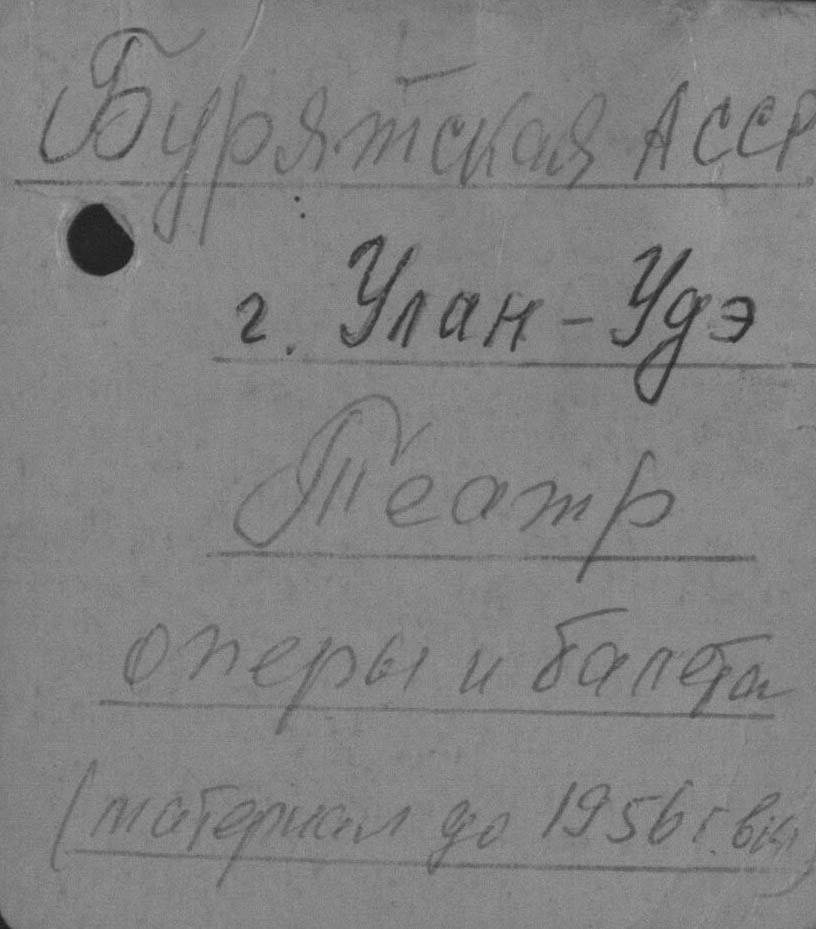 Бурятская АССР
г. Улан-Удэ
Театр
оперы и балета
(материал до 1956 г. вкл)